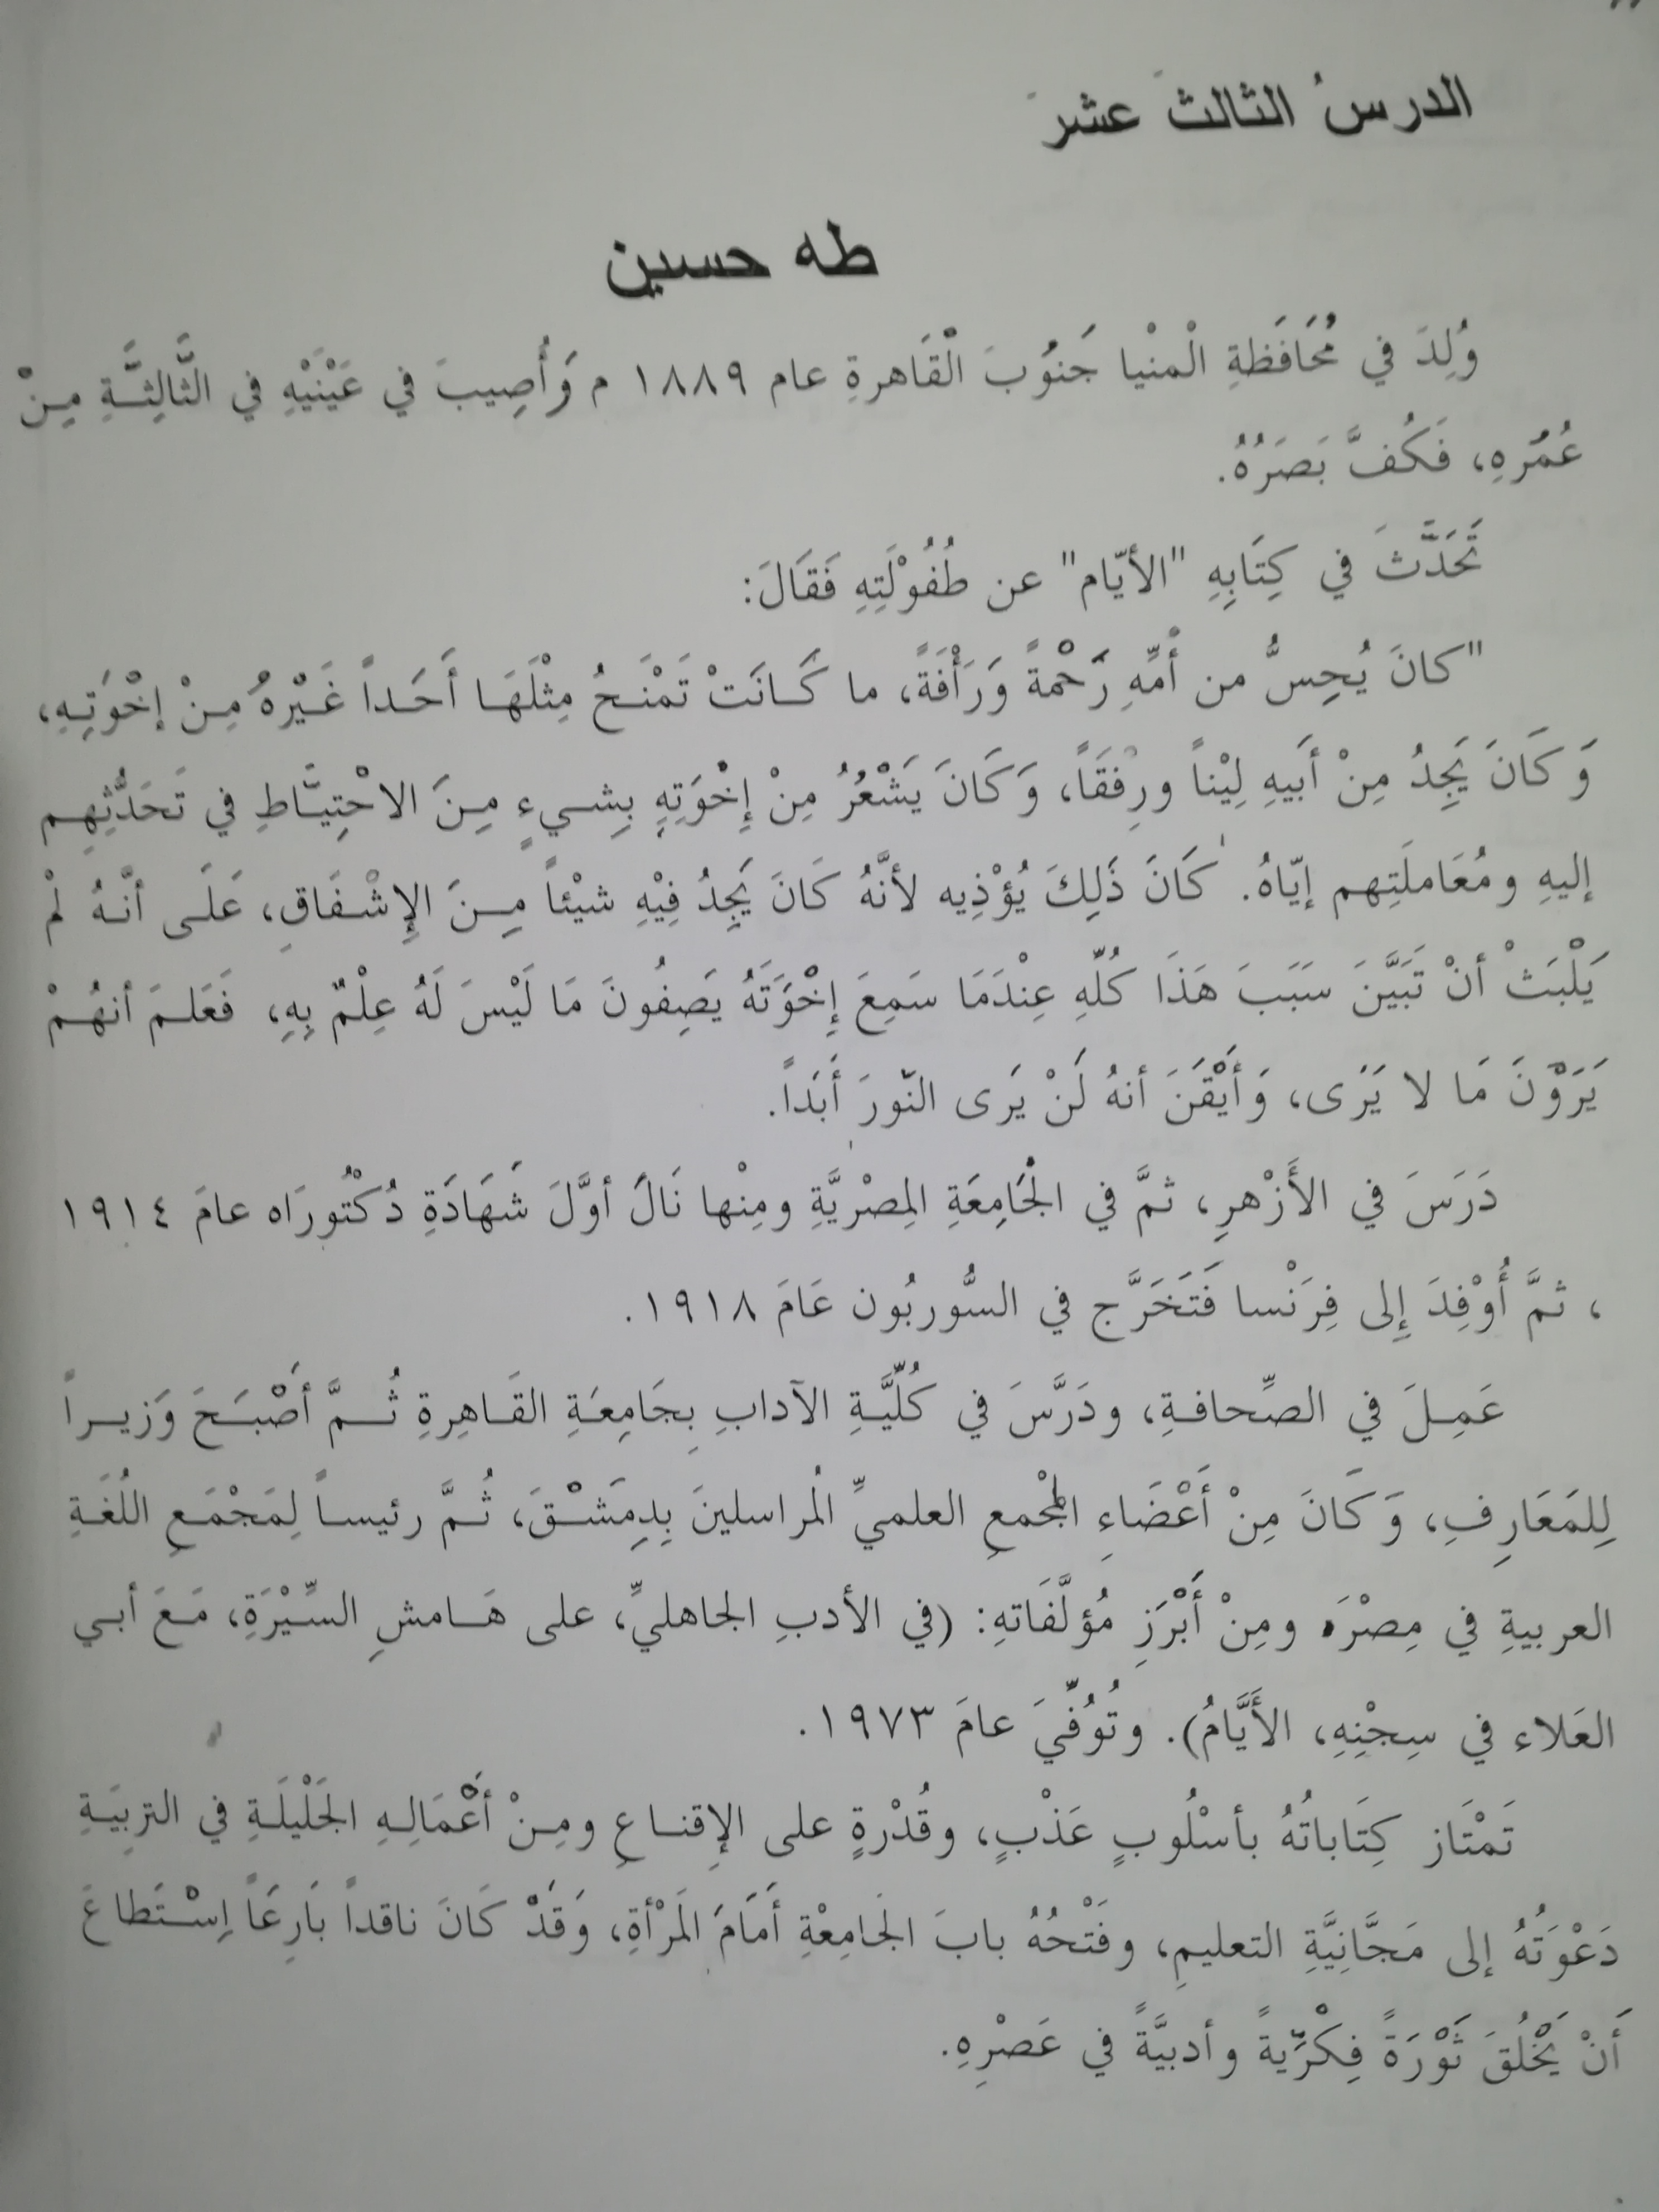 الدرسُ الثالثَ عشرَ
طه حسين
وُلِدَ في مُحَافَظَةِ الْمنْيا جَنوُبَ الْقَاهرةِ عام ١٨٨٩ م وَأُصِيبَ في عَيْنَيْهِ في الثَّالِثَّةِ مِنْ
عُمُرهِ، فَكُفَّ بَصَرُهُ.
تَحَدَّثَ في كِتَابِهِ "الأيّام" عن طُفُوْلَتِهِ فَقَالَ:
"كانَ يُحِسُّ من أُمِّهِ رَحْمةً وَرَأْفَةً، ما كَانَتْ تَمْنَحُ مِثْلَهَا أَحَداً غَيْرهُ مِنْ إخْوَتِهِ،
وَكَانَ يَجِدُ مِنْ أَبيهِ لِيْناً ورِفْقَاً، وَكَانَ يَشْعُرُ مِنْ إِخْوَتِهِ بِشيءٍ مِنَ الاحْتِيَّاطِ في تَحَدُّثِهِم
إليهِ ومُعَاملَتِهم إيّاهُ. كَانَ ذَلِكَ يُؤْذِيه لأنَّهُ كَانَ يَجِدُ فِيْهِ شيْئاً مِنَ الإِشْفَاقِ، عَلَى أنّهُ لمْ
يَلْبَثْ أنْ تَبَيَّنَ سَبَبَ هَذَا كُلّهِ عِنْدَمَا سَمِعَ إِخْوَتَهُ يَصِفُونَ مَا لَيْسَ لَهُ عِلْمٌ بِهِ، فَعَلمَ أنهُمْ
يَرَوْنَ مَا لا يَرَى، وَأَيْقَنَ أنهُ لَنْ يَرى النّورَ أَبَداً.
دَرَسَ في الأَزْهرِ، ثمَّ في الْجَامِعَةِ المِصْريَّةِ ومِنْها نَالَ أوَّلَ شَهَادَةِ دُكْتُورَاه عامَ ١٩١٤
، ثمَّ أُوْفِدَ إِلى فِرَنْسا فَتَخَرَّج في السُّوربُون عَامَ ١٩١٨.
عَمِلَ في الصِّحافةِ، ودَرَّسَ في كُلّيَّةِ الآدابِ بِجَامِعَةِ القَاهِرةِ ثُمَّ أصْبَحَ وَزيراً
لِلمَعَارِفِ، وَكَانَ مِنْ أَعْضَاءِ المجْمعِ العلميِّ الْمراسلينَ بِدِمَشْقَ، ثُمَّ رئيساً لِمَجْمَعِ اللُغَةِ
العربيةِ في مِصْرَ، ومِنْ أَبْرَزِ مُؤلَّفَاتهِ: (في الأدبِ الجاهليِّ، على هَامشِ السِّيْرَةِ، مَعَ أبي
العَلاء في سِجْنِهِ، الأَيَّامُ). وتُوُفِّيَ عامَ ١٩٧٣.
تَمْتَاز كِتَاباتُهُ بأسْلُوبٍ عَذْبٍ، وقُدْرةٍ على الإِقناعِ ومِنْ أعْمَالِهِ الجَلْيلَةِ في التربِيَةِ
دَعْوَتُهُ إلى مَجَّانِيَّةِ التعليمِ، وفَتْحُهُ بابَ الجَامِعْةِ أَمَامَ المَرْأةِ، وَقَدْ كَانَ ناقداً بَارِعَاً اِسْتَطاعَ
أَنْ يَخْلُقَ ثَوْرَةً فِكْرّيةً وأدبيَّةً في عَصْرِهِ.